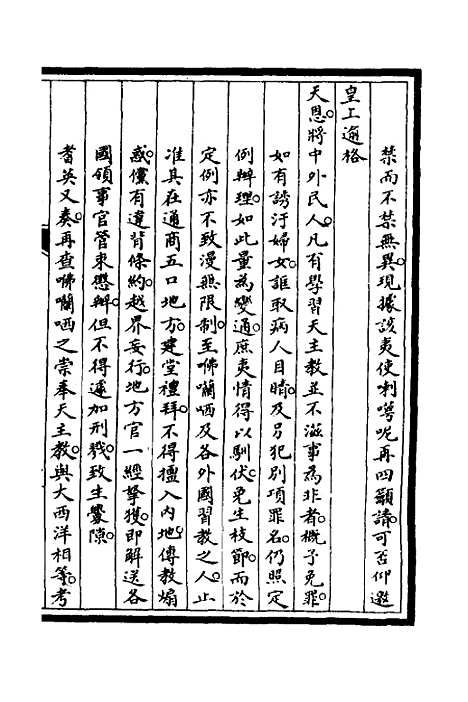 禁而不禁無異。現據該夷使喇噚呢再四籲請。可否仰邀
皇上逾格
天恩。將中外民人。凡有學習天主教並不滋事為非者。概予免罪。
如有誘汙婦女。誆取病人目睛。及另犯別項罪名。仍照定
例辦理。如此量為變通。庶夷情得以馴伏。免生枝節。而於
定例亦不致漫無限制。至咈囒哂及各外國習教之人。止
准其在通商五口地方。建堂禮拜。不得擅入內地。傳教煽
惑。儻有違背條約。越界妄行。地方官一經拏獲。即解送各
國領事官管束懲辦。但不得遽加刑戮。致生釁隙。
耆英又奏。再查咈囒哂之崇奉天主教。與大西洋相等。考